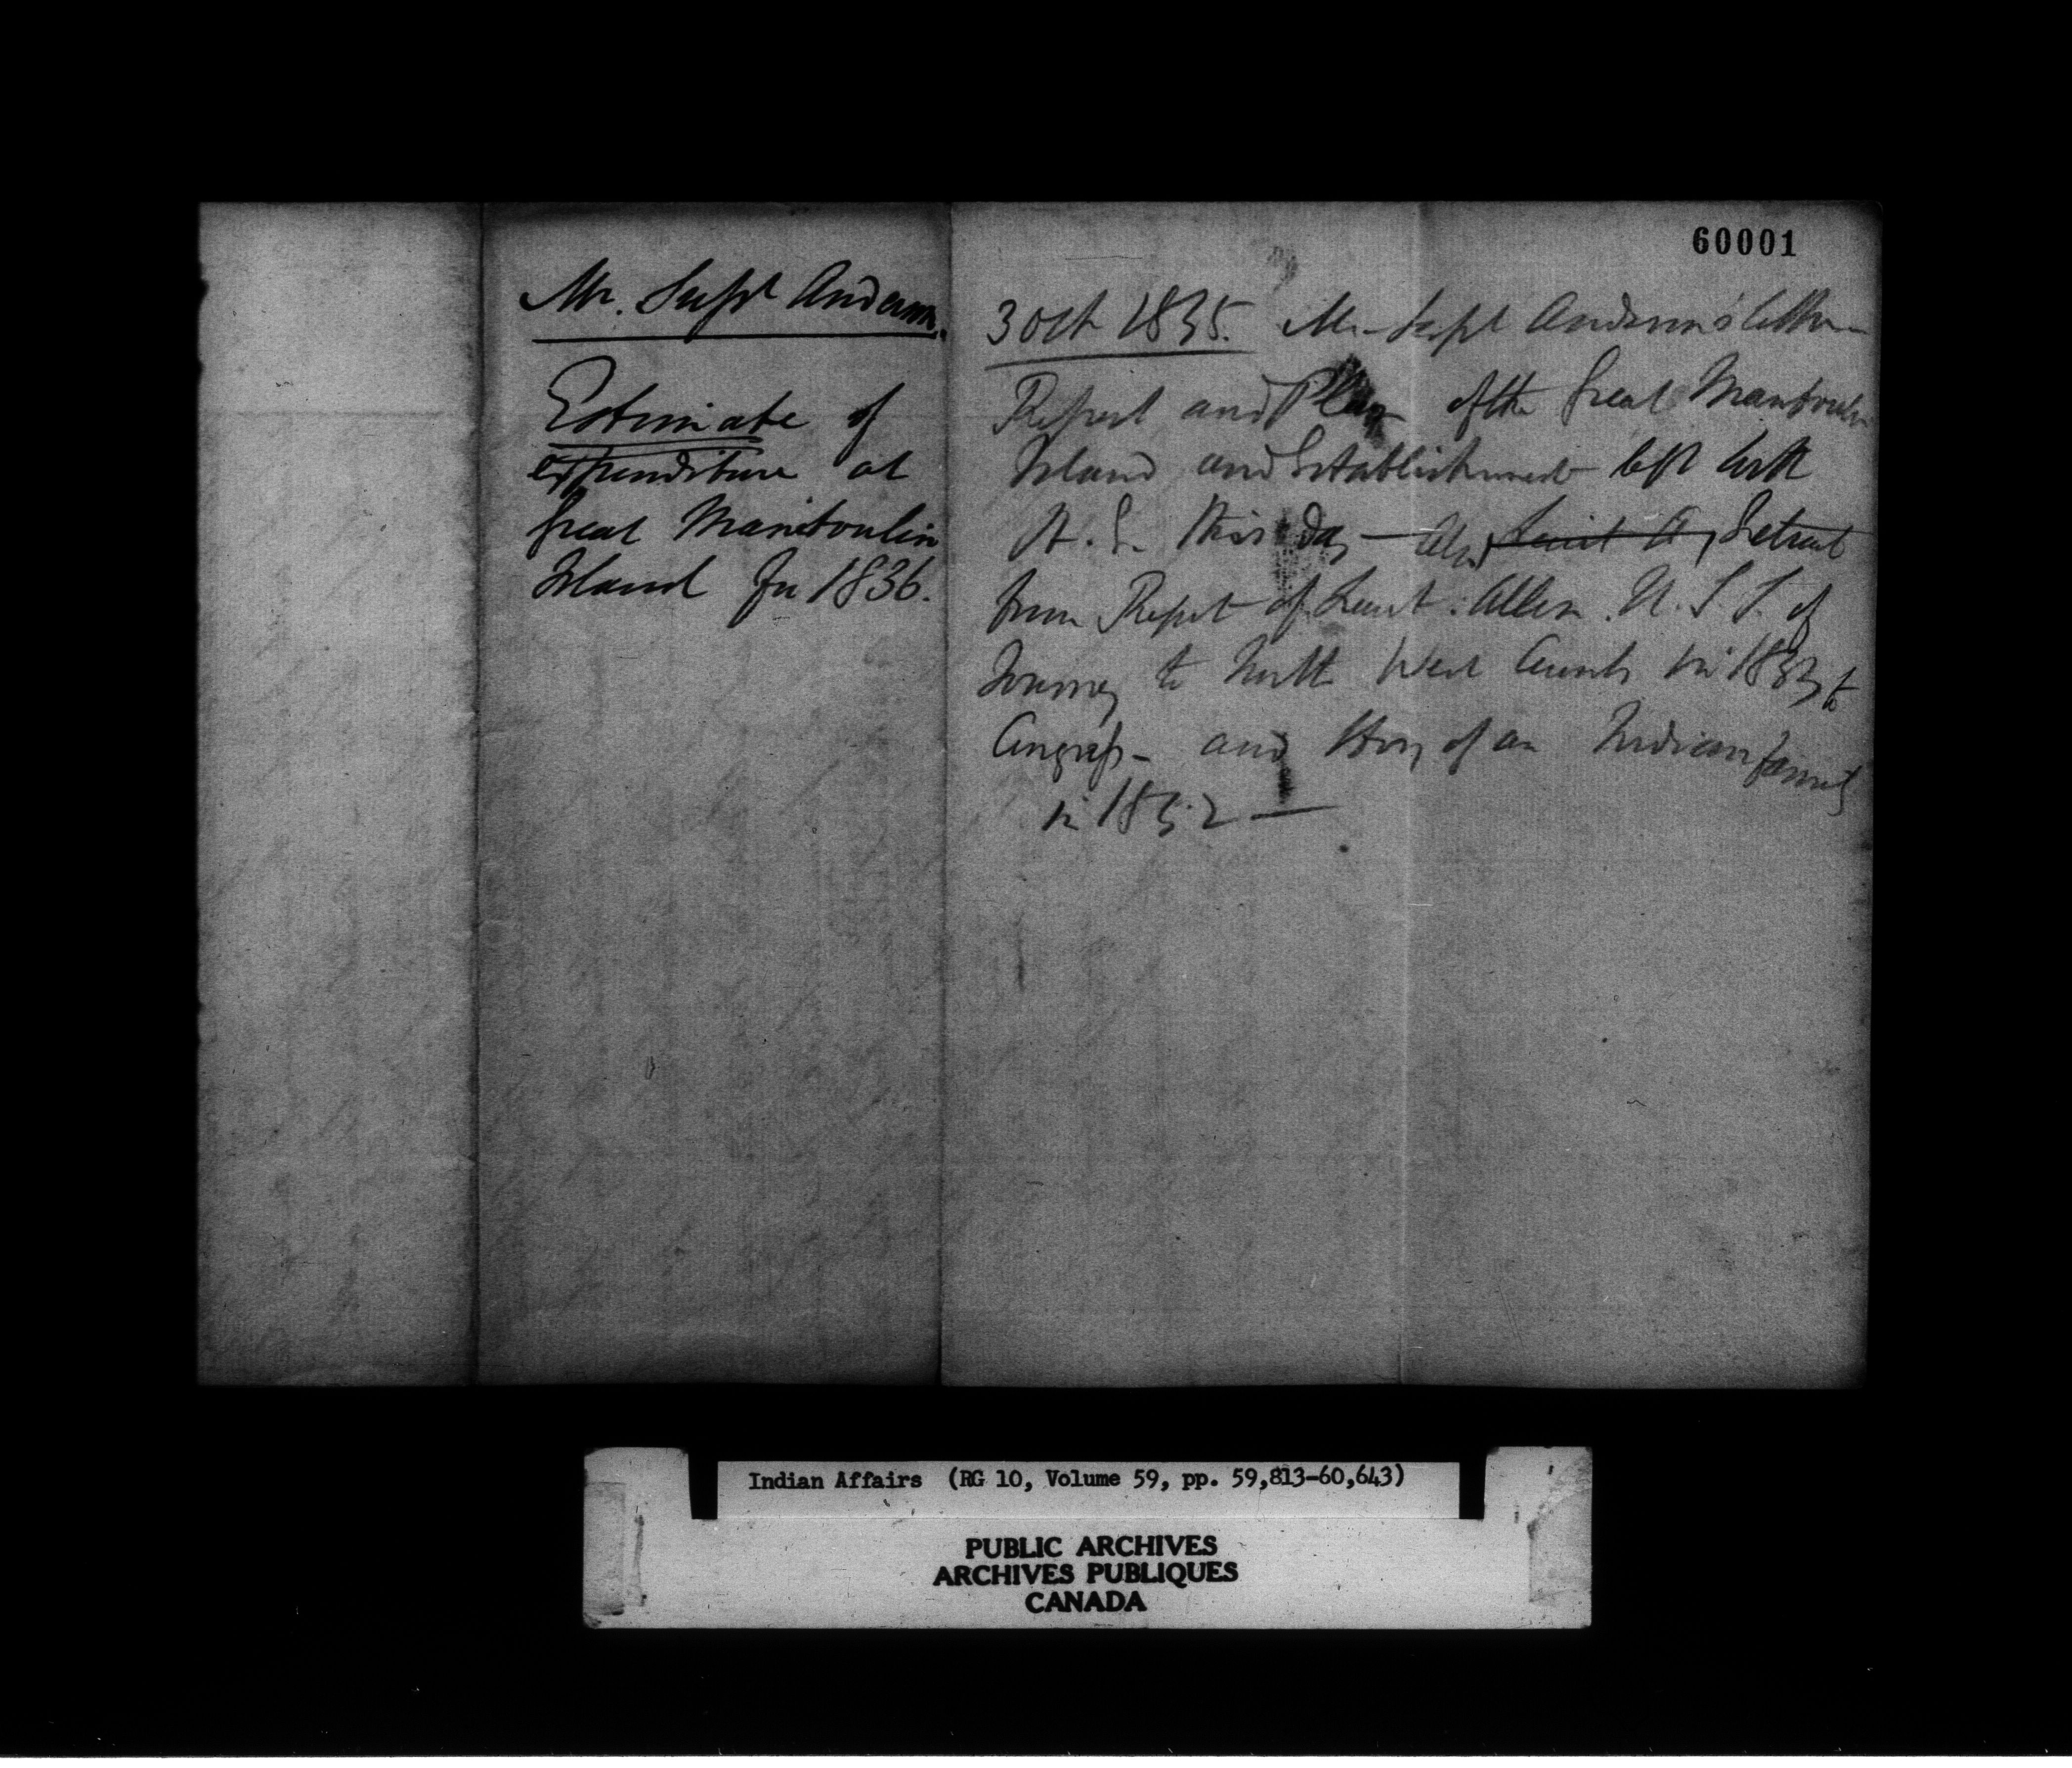 60001
Mr. Supt Anderson.
Estimate of
expenditure at
Great Manitoulin
Island for 1836.
3 Oct 1835. Mr Supt Anderson's letter
Report and Plan of the Great Manitoulin
Island and Establishment left with
H. E. this day — also Lieut A, Extract
from Report of Lieut: Allen. U. S. of
Journey to North West Country in 183 to
Congress - and Story of an Indian family
in 1832 —
Indian Affairs (RG 10, Volume 59, pp. 59,813-60,643)
PUBLIC ARCHIVES
ARCHIVES PUBLIQUES
CANADA